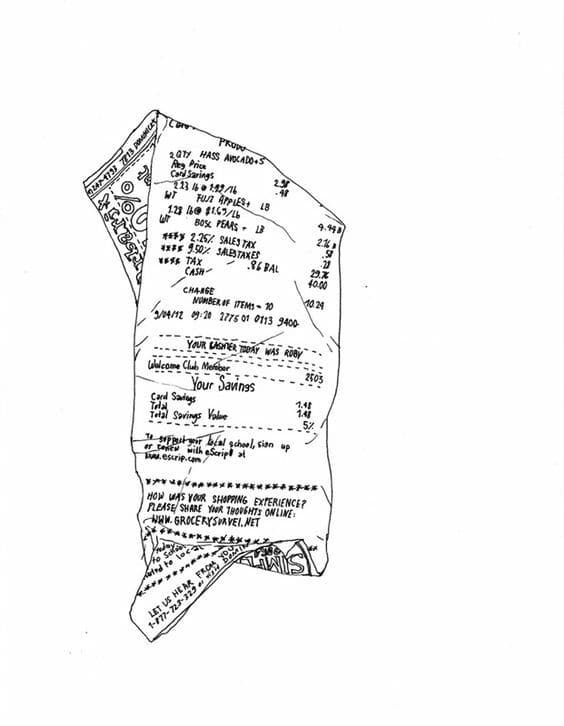 PRODU
2 QTY HASS AVOCADO+S
Reg Price 2.98
Card Savings .48
2.23 lb @ 1.99/lb
WT FUJI APPLES+ LB 4.44 B
1.28 lb @ $1.69/Lb
WT BOSC PEARS + LB 2.16 B
**** 2.25% SALES TAX .58
**** 9.50% SALES TAXES .28
**** TAX .86 BAL 29.76
CASH 40.00
CHANGE 10.24
NUMBER OF ITEMS = 10
9/04/12 09:20 2775 01 0113 9400
YOUR CASHIER TODAY WAS ROBY
Welcome Club Member 2503
Your Savings
Card Savings 1.48
Total 1.48
Total Savings Value 5%
To support your local school, sign up
or renew with eScrip® at
www.escrip.com/
*********************
HOW WAS YOUR SHOPPING EXPERIENCE?
PLEASE SHARE YOUR THOUGHTS ONLINE:
WWW.GROCERYSURVEI.NET
*********************
to School
LET US HEAR FROM YOU